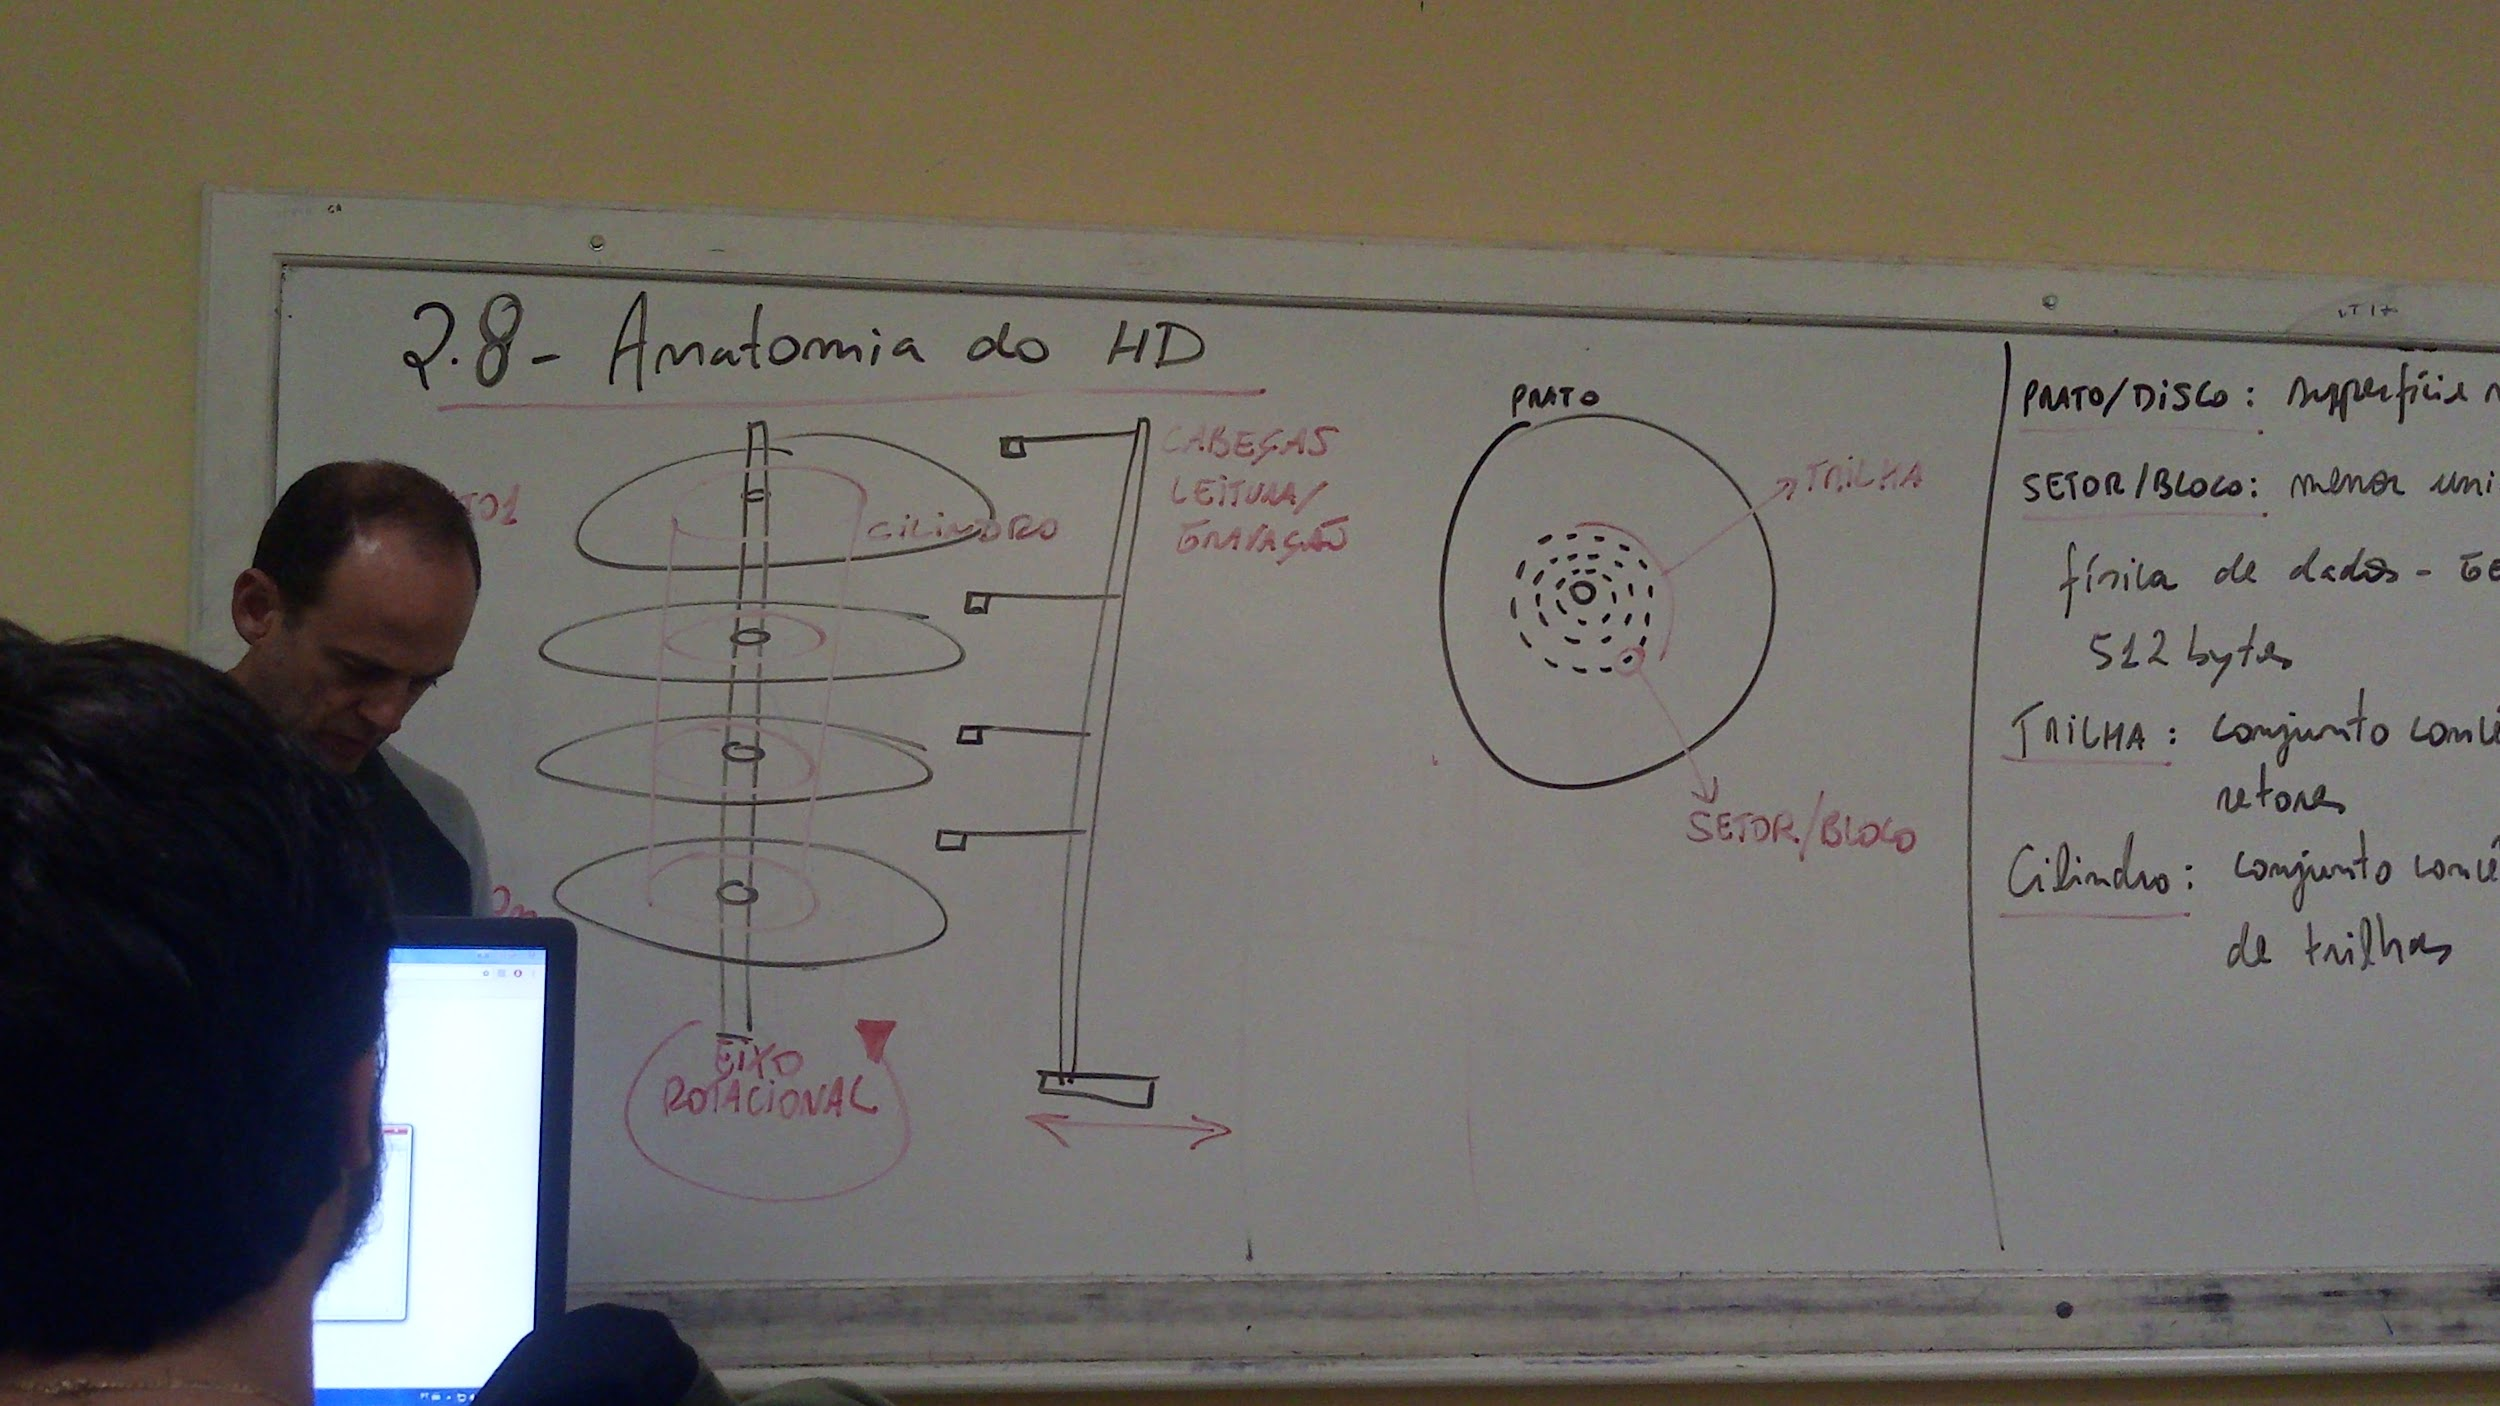 2.8- Anatomia do HD
CABEÇAS
LEITURA/
GRAVAÇÃO
CILINDRO
EIXO
ROTACIONAL
PRATO
TRILHA
SETOR/BLOCO
PRATO/DISCO: superfície
SETOR/BLOCO: menor uni
física de dados - GE
512 bytes
TRILHA: conjunto concê
setores
Cilindro: conjunto concê
de trilhas